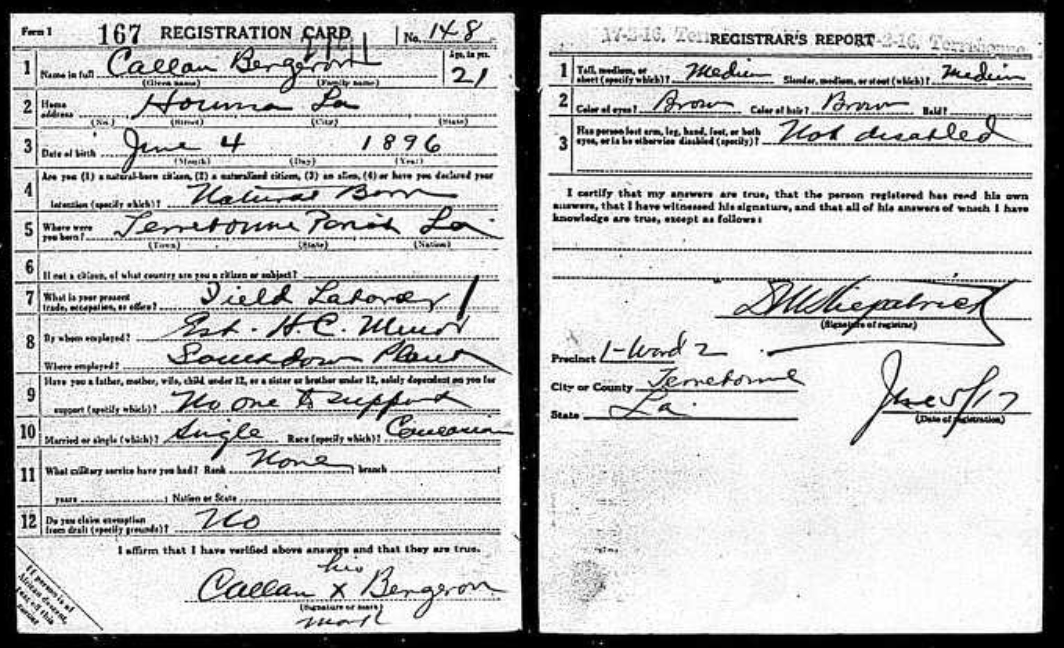 Form 1 167 REGISTRATION CARD No. 148
1 Name in full Callan Bergeron Age, in yrs. 21
(Given name) (Family name)
2 Home address Houma La
(No.) (Street) (City) (State)
3 Date of birth June 4 1896
(Month) (Day) (Year)
4 Are you (1) a natural-born citizen, (2) a naturalized citizen, (3) an alien, (4) or have you declared your
intention (specify which)? Natural Born
5 Where were you born? Terrebonne Parish La
(Town) (State) (Nation)
6 If not a citizen, of what country are you a citizen or subject?
7 What is your present trade, occupation, or office? Field Laborer
8 By whom employed? Est. H C. Minor
Where employed? Southdown Plant
9 Have you a father, mother, wife, child under 12, or a sister or brother under 12, solely dependent on you for
support (specify which)? No one to support
10 Married or single (which)? Single Race (specify which)? Caucasian
11 What military service have you had? Rank None ; branch ;
years ; Nation or State
12 Do you claim exemption from draft (specify grounds)? No
I affirm that I have verified above answers and that they are true.
his
Callan x Bergeron
(Signature or mark)
mark
If person is of
African descent,
tear off this
corner
17-2-16. REGISTRAR'S REPORT -2-16. Terrebonne
1 Tall, medium, or short (specify which)? Medium Slender, medium, or stout (which)? Medium
2 Color of eyes? Brown Color of hair? Brown Bald?
3 Has person lost arm, leg, hand, foot, or both eyes, or is he otherwise disabled (specify)? Not disabled
I certify that my answers are true, that the person registered has read his own
answers, that I have witnessed his signature, and that all of his answers of which I have
knowledge are true, except as follows:
Kilpatrick
(Signature of registrar)
Precinct 1-Ward 2
City or County Terrebonne
State La.
June 5/17
(Date of registration)